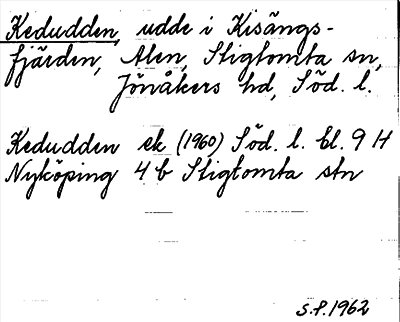 Kedudden, udde i Kisängs-
fjärden, Alen, Stigtomta sn,
Jönåkers hd, Söd. l.
Kedudden ek (1960) Söd. l. bl. 9 H
Nyköping 4 b Stigtomta stn
S.P. 1962